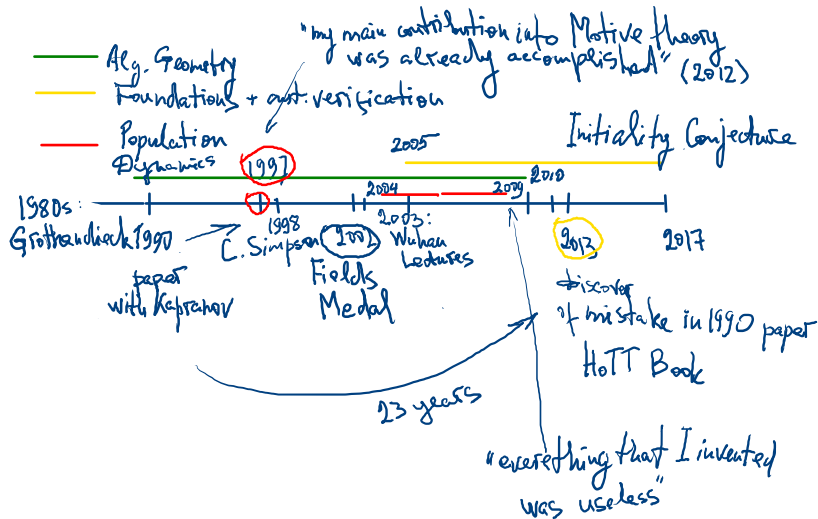 "my main contribution into Motive theory
was already accomplished" (2012)
Alg. Geometry
Foundations + aut. verification
Population
Dynamics
1997
2005
Initiality Conjecture
2010
2004
2009
1980s:
Grothendieck
1990
paper
with Kapranov
1998
C. Simpson
2002
Fields
Medal
2003:
Wuhan
Lectures
2013
discover
of mistake in 1990 paper
HoTT Book
2017
23 years
"everething that I invented
was useless"